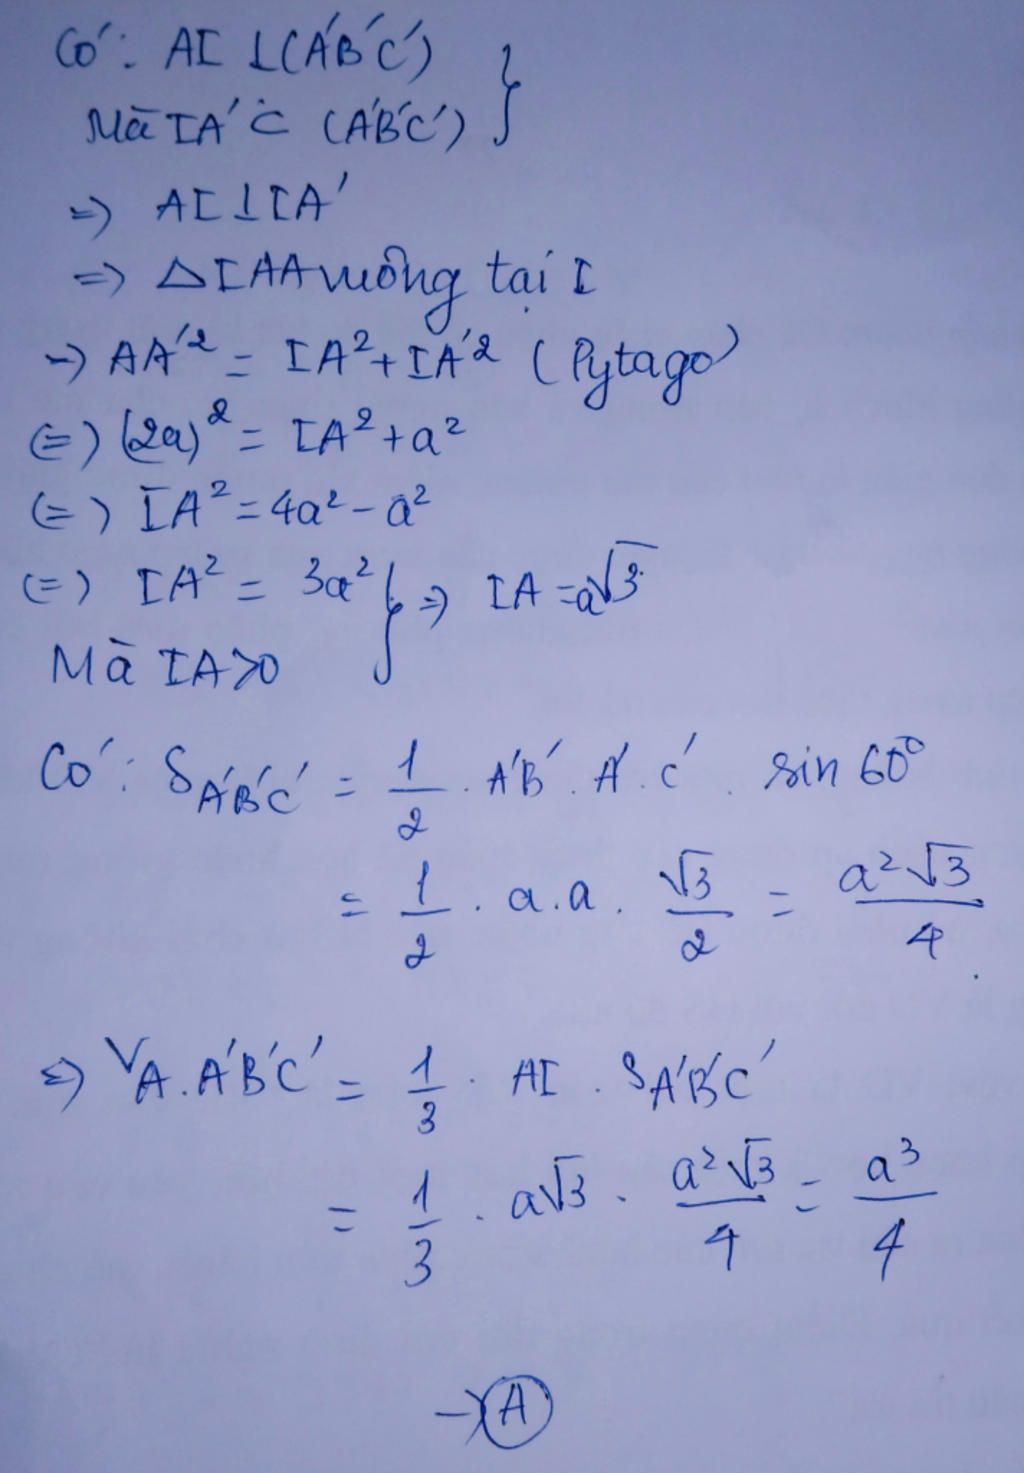 Có: AI ⊥ (A'B'C') }
Mà IA' ⊂ (A'B'C')
=> AI ⊥ IA'
=> △IAA vuông tại I
-> AA'² = IA² + IA'² (Pytago)
(=) (2a)² = IA² + a²
(=) IA² = 4a² - a²
(=) IA² = 3a² } => IA = a√3
Mà IA > 0
Có: S A'B'C' = 1/2 . A'B' . A'.C' . sin 60°
= 1/2 . a.a . √3/2 = a²√3/4
=> V A.A'B'C' = 1/3 . AI . S A'B'C'
= 1/3 . a√3 . a²√3/4 = a³/4
-> A